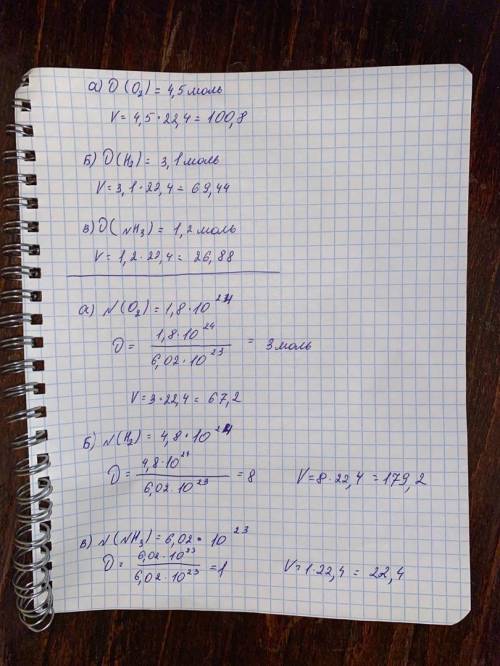 а) ν(O₂) = 4,5 моль
V = 4,5 · 22,4 = 100,8
Б) ν(H₂) = 3,1 моль
V = 3,1 · 22,4 = 69,44
в) ν(NH₃) = 1,2 моль
V = 1,2 · 22,4 = 26,88
а) N(O₂) = 1,8 · 10²⁴
ν = 1,8 · 10²⁴ / 6,02 · 10²³ = 3 моль
V = 3 · 22,4 = 67,2
Б) N(H₂) = 4,8 · 10²⁴
ν = 4,8 · 10²⁴ / 6,02 · 10²³ = 8 V = 8 · 22,4 = 179,2
в) N(NH₃) = 6,02 · 10²³
ν = 6,02 · 10²³ / 6,02 · 10²³ = 1 V = 1 · 22,4 = 22,4